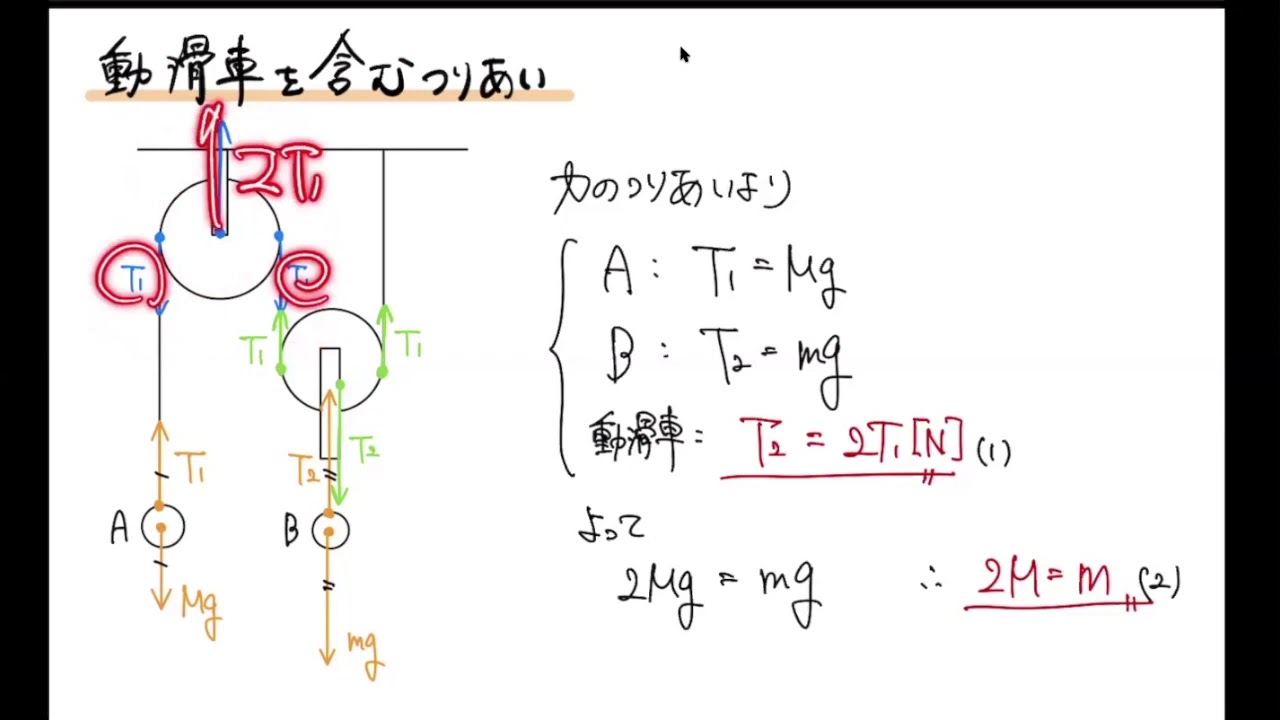 動滑車を含むつりあい
2T₁
T₁
T₁
T₁
T₁
T₁
T₂
T₂
A
B
Mg
mg
力のつりあいより
A : T₁ = Mg
B : T₂ = mg
動滑車 : T₂ = 2T₁ [N] (1)
よって
2Mg = mg ∴ 2M = m (2)